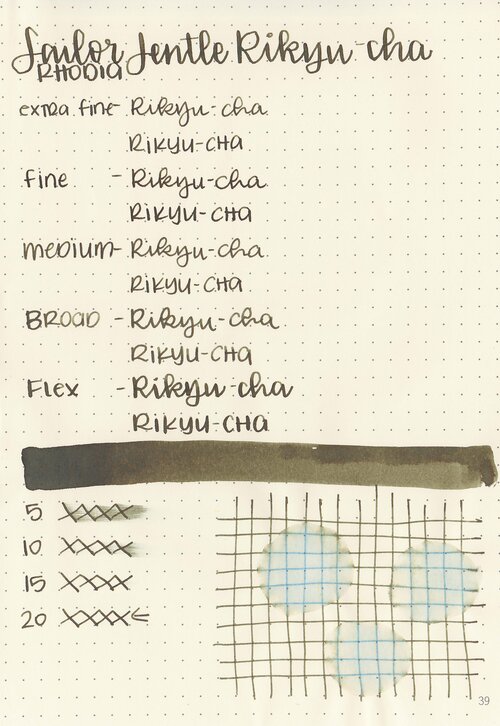 Sailor Jentle Rikyu-cha
RHODIA
extra fine - Rikyu-cha
RIKYU-CHA
fine - Rikyu-cha
RIKYU-CHA
medium - Rikyu-cha
RIKYU-CHA
BROAD - Rikyu-cha
RIKYU-CHA
Flex - Rikyu-cha
RIKYU-CHA
5 XXXX
10 XXXX
15 XXXX
20 XXXX
39